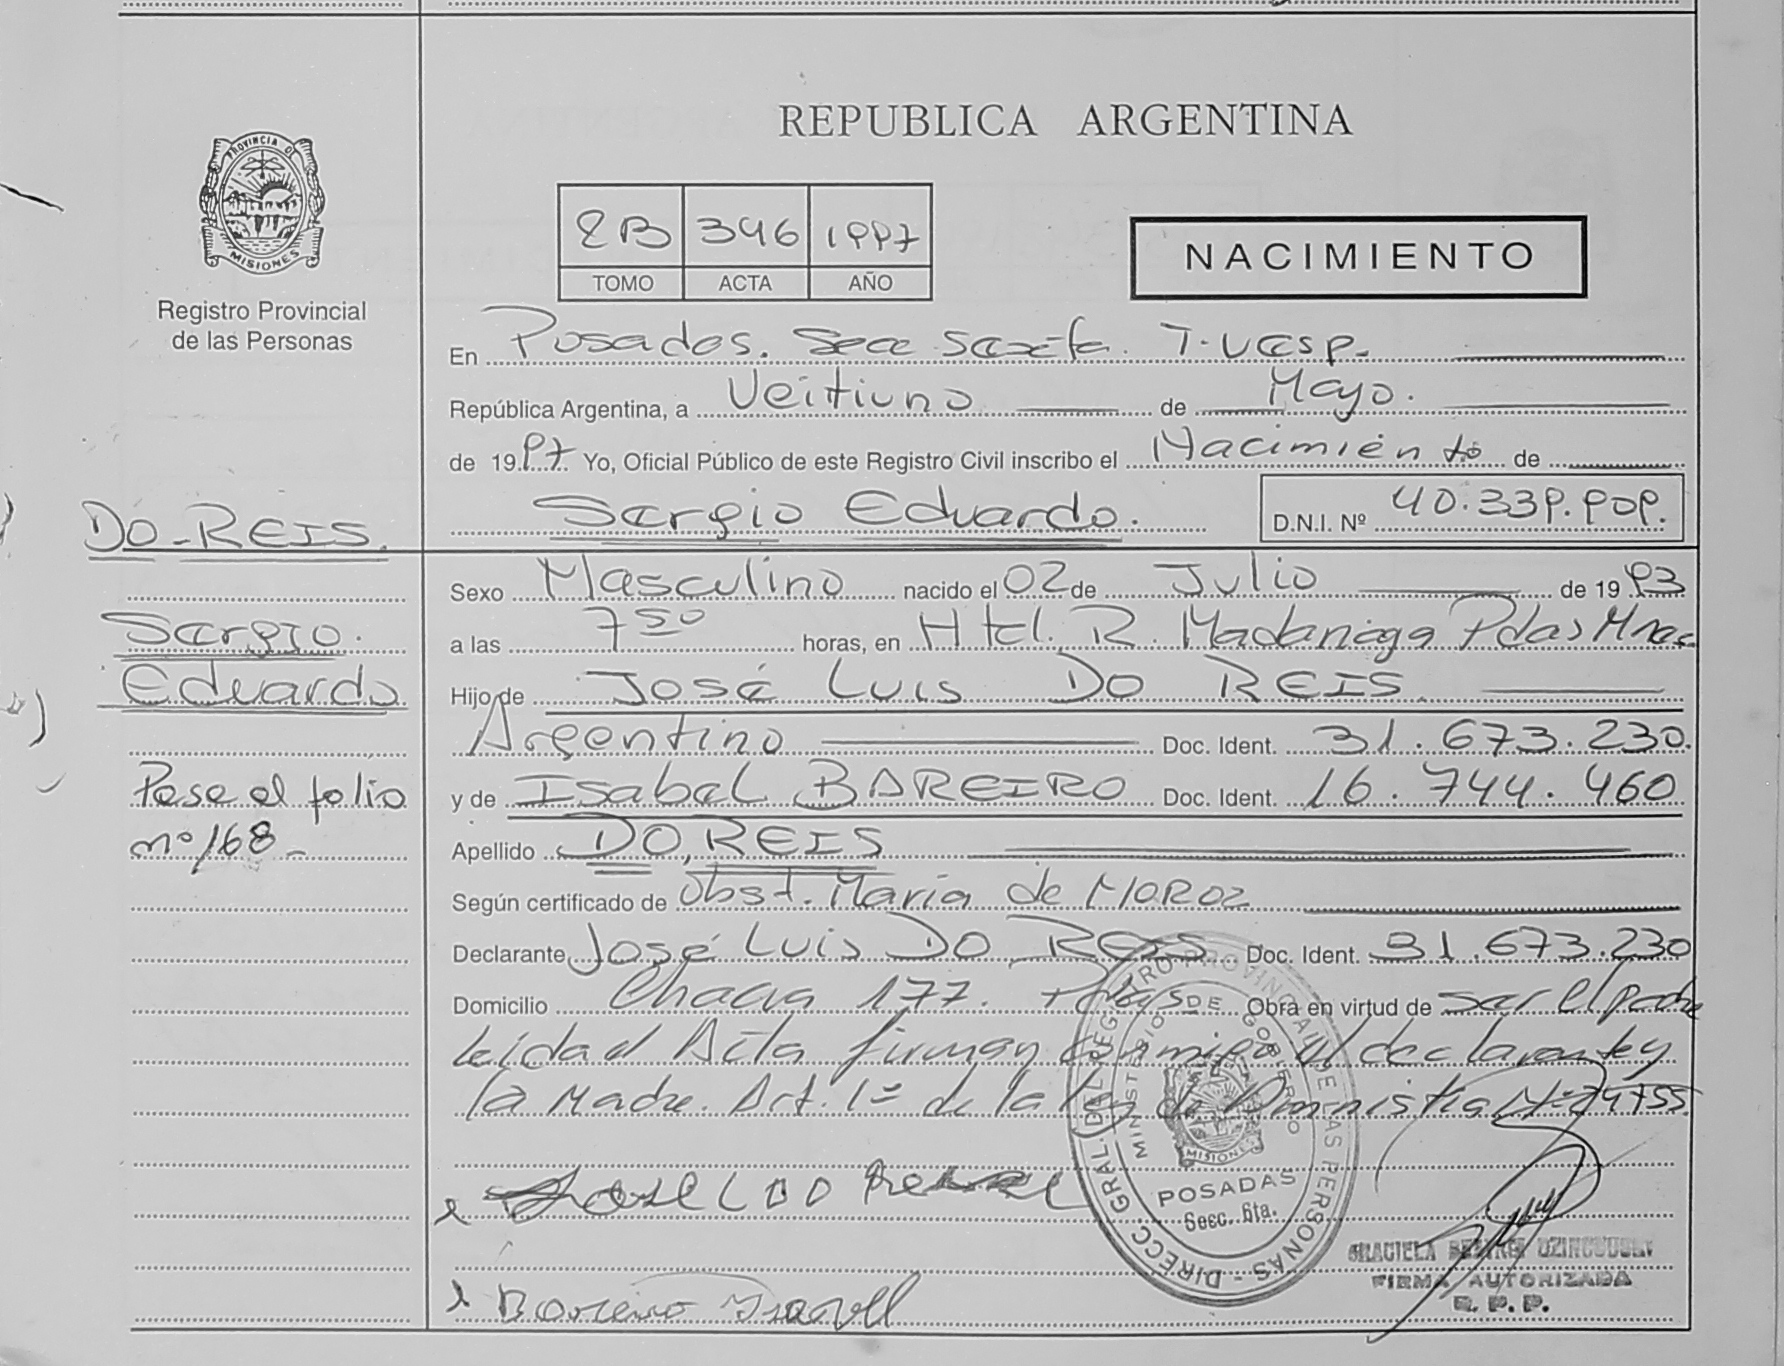 REPUBLICA ARGENTINA
PROVINCIA DE
MISIONES
Registro Provincial
de las Personas
2B 346 1997
TOMO ACTA AÑO
NACIMIENTO
En Posadas. Secc Sexta. T. Vesp.
República Argentina, a Veitiuno de Mayo.
de 1997 Yo, Oficial Público de este Registro Civil inscribo el Nacimiento de
Sergio Eduardo. D.N.I. Nº 40.339.909.
DO-REIS.
Sergio.
Eduardo
Pase al folio
nº 168-
Sexo Masculino nacido el 02 de Julio de 1993
a las 7 50 horas, en Htal. R. Madariaga Pdas Mnes
Hijo de José Luis DO REIS
Argentino Doc. Ident. 31.673.230.
y de Isabel BAREIRO Doc. Ident. 16.744.460
Apellido DO, REIS
Según certificado de Obst. María de MOROZ
Declarante José Luis DO REIS Doc. Ident. 31.673.230
Domicilio Chacra 177. Pdas Obra en virtud de ser el padre
Leída el Acta firman conmigo el declarante y
la Madre. Art. 1º de la Ley de Amnistia Nº 24755
José L DO
Bareiro Isabel
DIRECC. GRAL. DEL REGISTRO PROVINCIAL DE LAS PERSONAS -
MINISTERIO DE GOBIERNO
MISIONES
POSADAS
Secc. 6ta.
GRACIELA BEATRIZ
FIRMA AUTORIZADA
R. P. P.